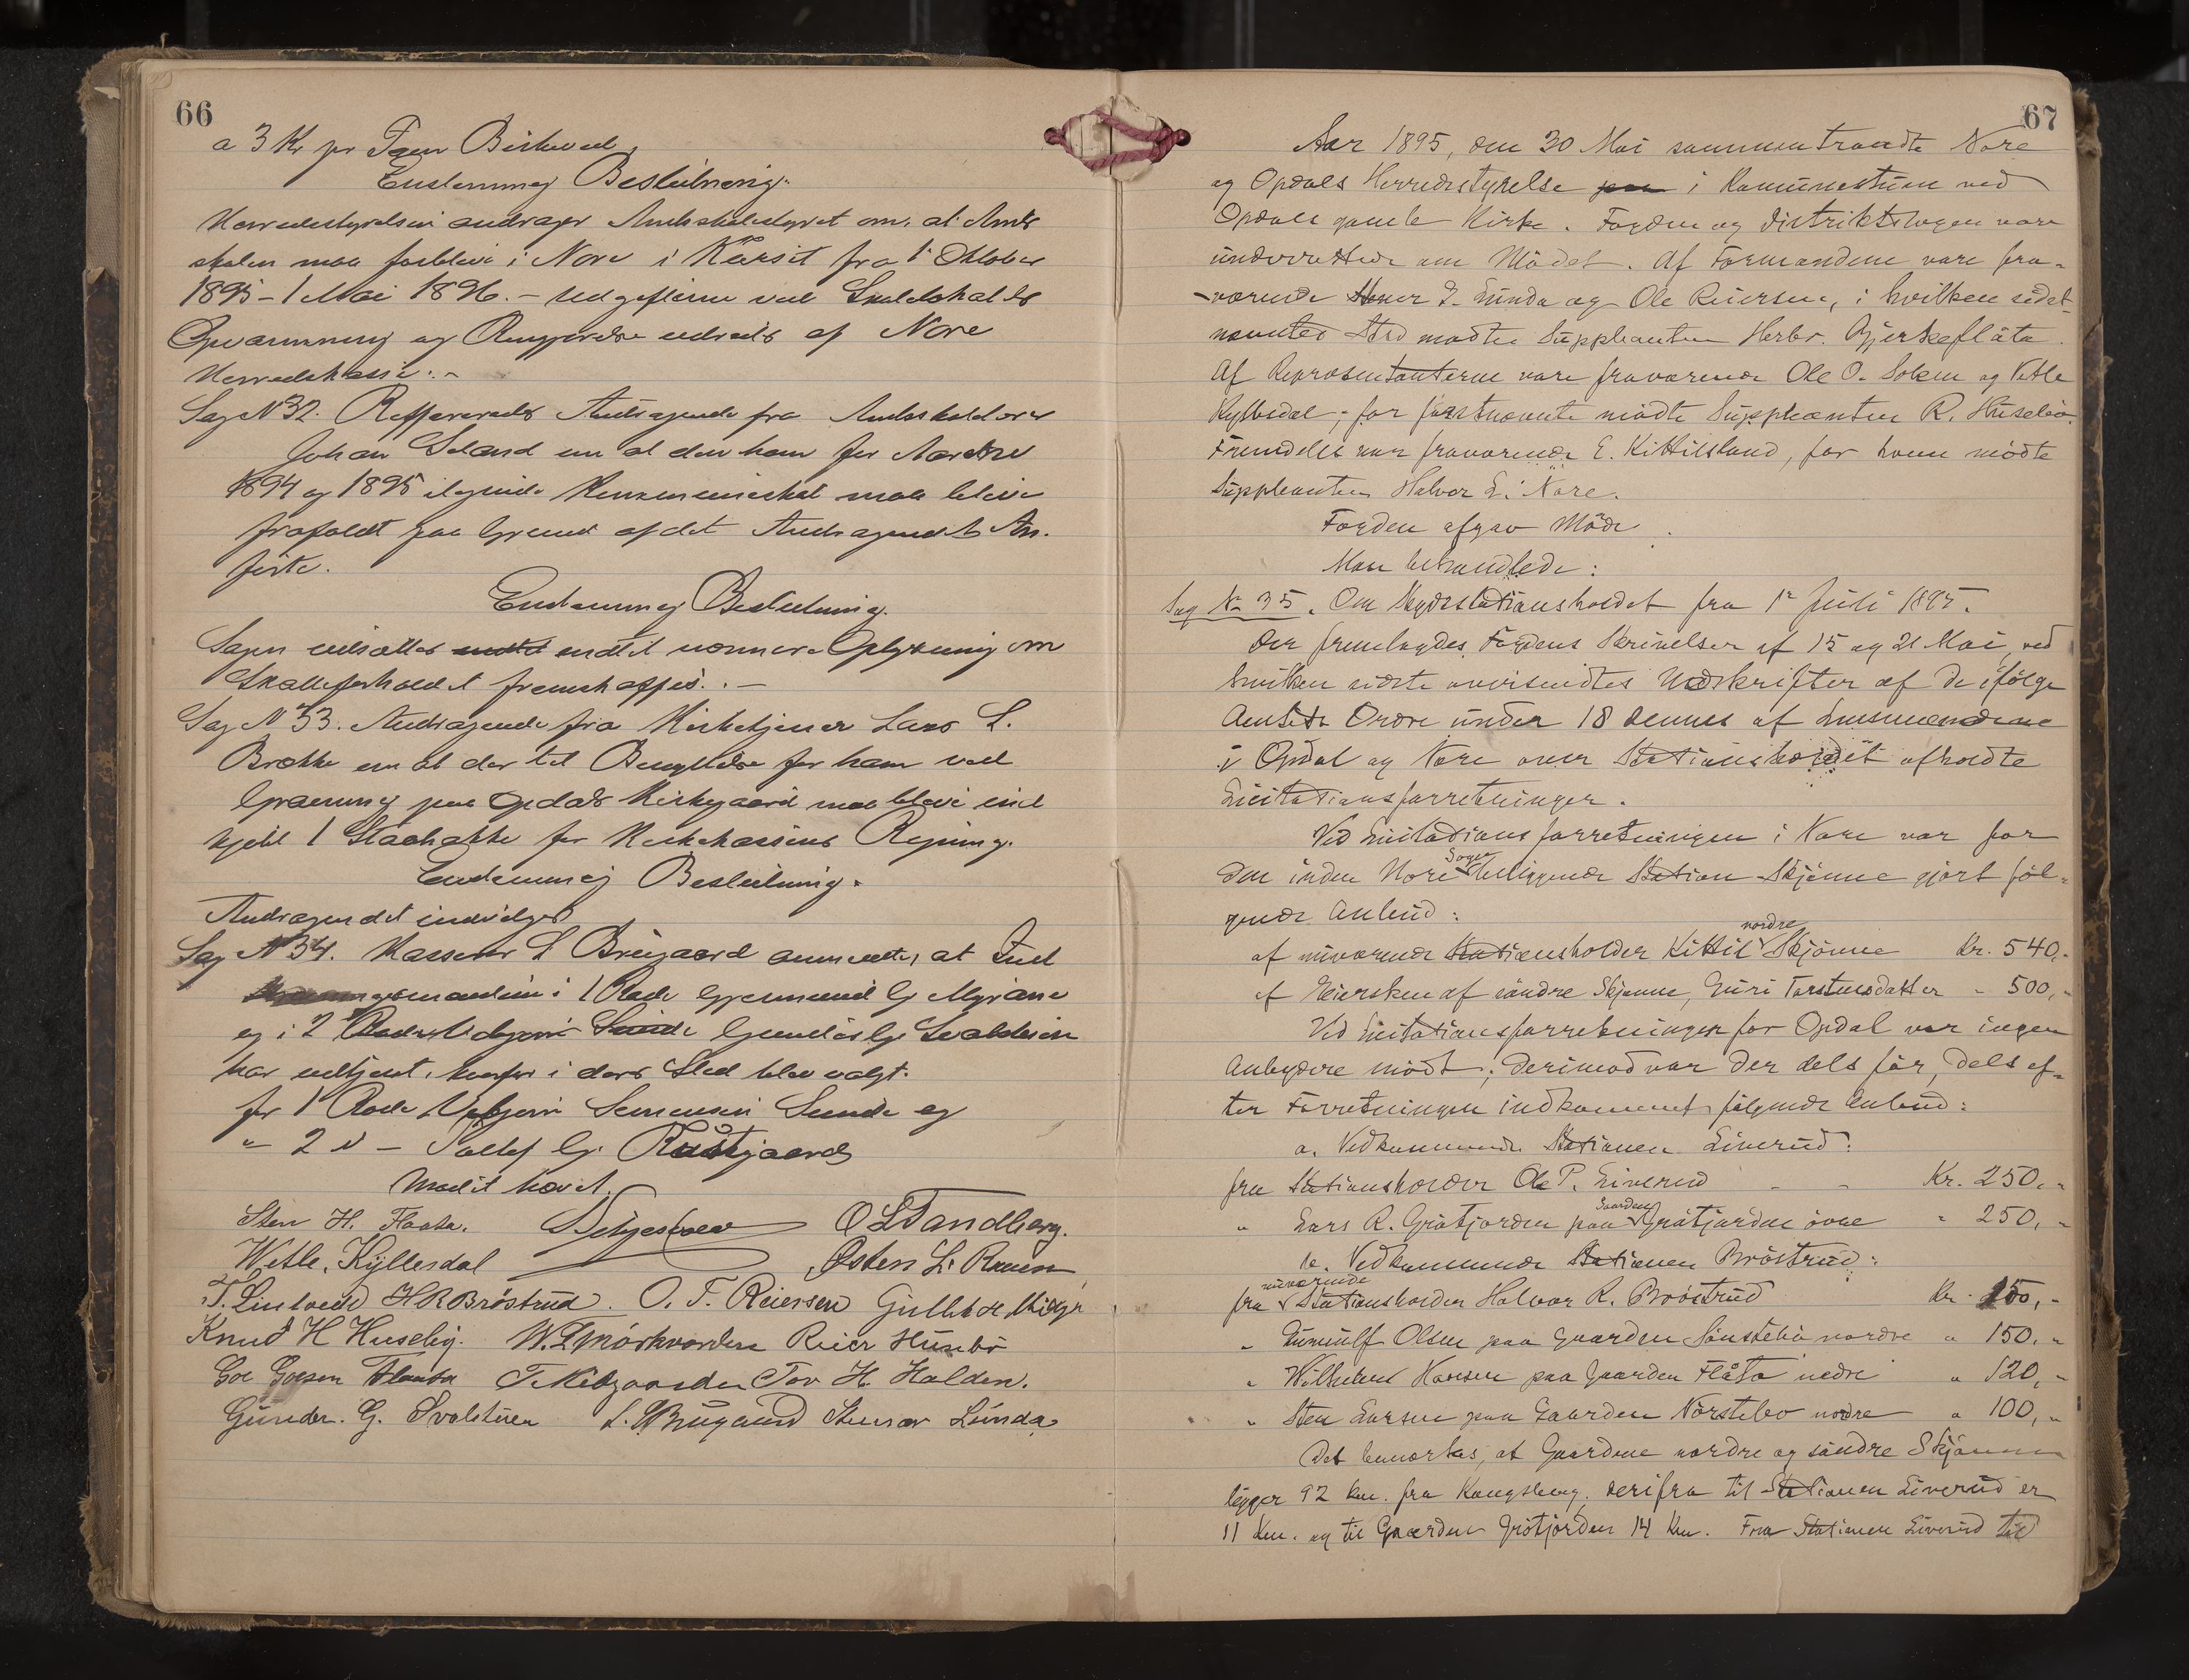 66
a 3 Kr pr Favn Birkeved.
Enstemmig Beslutning.
Herredsstyrelsen andrager Amtsskolestyret om, at Amts
skolen maa forblive i Nore i Kursit fra 1 Oktober
1895 - 1 Mai 1896. - Udgifterne ved Skolelokalets
Opvarmning og Rengjørelse udredes af Nore
Herredskasse. -
Sag N 32. Reffereredes Andragende fra
Johan Seland om at den ham for Aarene
1894 og 1895 ilagnede Kommuneskat maa blive
frafaldt paa Grund af det Andragendets An-
førte.
Enstemmig Beslutning.
Sagen udsættes indtil nærmere Oplysning om
Skatteforholdet fremskaffes. -
Sag N 33. Andragende fra Kirketjener Lars L.
Brække om at der til Benyttelse for ham ved
Gravning paa Opdals Kirkegaard maa blive ind
kjøbt 1 Staahakke for Kirkekassens Regning.
Enstemmig Beslutning.
Andragendet indvilges
Sag N 34. Kasserer S Brugaard anmeldte, at
i 1 Rode Gjermund G Myrane
og i 2 Gundløs G. Svalstuen
har udtjent, hvorfor i deres Sted blev valgt.
for 1 Rode Vebjørn Simensen Sunde og
" 2 D - Tollef G. Røstgaard
Mødet hævet.
Sten H. Flaata. O L Tandberg.
Wetle. Kyllesdal Østen L. Raaen
T. Lintvedt H R Brøstrud. O. T. Reiersen Gulbr H.
Knud H Huseby. W. T Mørkvorden Reier Hünbö
Goe Goesen Flaata T. Tov H. Halden.
Gunder. G. Svalstuen S. Brugaard Steinar Lunda
67
Aar 1895, den 30 Mai sammentraadte Nore
og Opdals Herredsstyrelse paa i Komunestuen ved
Opdals gamle Kirke. Fogden og Distriktslægen vare
underrettede om Mødet. Af Formændene vare fra-
-værende Stener T. Lunda og Ole Reiersen, i hvilken sidst-
nævntes Sted mødte Suppleanten Herbr. Bjerkeflåta.
Af Repræsentanterne vare fraværende Ole O. Solem og Vetle
Kyllesdal; for førstnævnte mødte Suppleanten R. Husebö.
Fremdeles var fraværende E. Kittilsland, for hvem mødte
Suppleanten Halvor L. Nore.
Fogden afgav Møde.
Man behandlede:
Sag No 35. Om Skydsstationsholdet fra 1ste Juli 1895.
Der fremlagdes Fogdens Skrivelser af 15 og 21 Mai, ved
hvilken sidste oversendtes Udskrifter af de ifølge
Amtets Ordre under 18 dennes af Lensmændene
i Opdal og Nore over Stationsholdet afholdte
Licitationsforretninger.
Ved Licitationsforretningen i Nore var for
den inden Nore Sogn beliggende Station Skjönne gjort föl-
gende Anbud:
af nuværende Stationsholder Kittil nordre Skjönne Kr. 540,-
af Eiersken af söndre Skjønne, Guri Torstensdatter " 500,-
Ved Licitationsforretningen for Opdal var ingen
Anbydere mødt; derimod var der dels för, dels ef-
ter Forretningen indkommet følgende Anbud:
a. Vedkommende Stationen Liverud:
fra Stationsholder Ole P. Liverud - - Kr. 250,-
" Lars R. Grøtjorden paa Gaarden Grøtjorden övre " 250,-
b. Vedkommende Stationen Bröstrud:
fra nuværende Stationsholder Halvor R. Bröstrud Kr. 150,-
" Gunnulf Olsen paa Gaarden Sönstebö nordre " 150,-
" Wilhelm Hansen paa Gaarden Flåta nedre " 120,-
" Sten Larsen paa Gaarden Nörstebö nordre " 100,-
Det bemærkes, at Gaardene nordre og söndre Skjönne
ligger 92 km. fra Kongsberg. Derifra til Stationen Liverud er
11 Km. og til Gaarden Grøtjorden 14 Km. Fra Stationen Liverud til